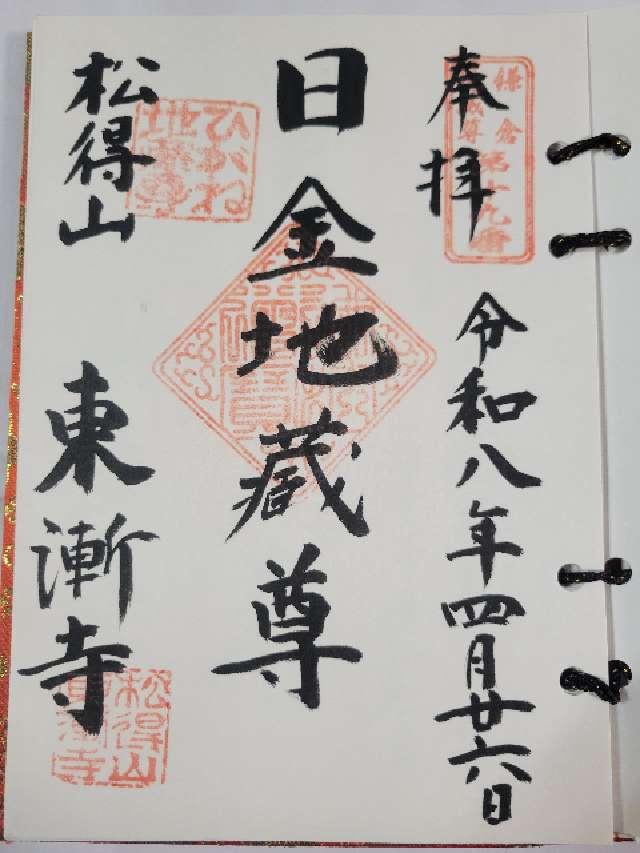 奉拝
鎌倉
地蔵尊
第十九番
令和八年四月廿六日
日金地蔵尊
松得山
ひがね
地蔵尊
東漸寺
松得山
東漸寺